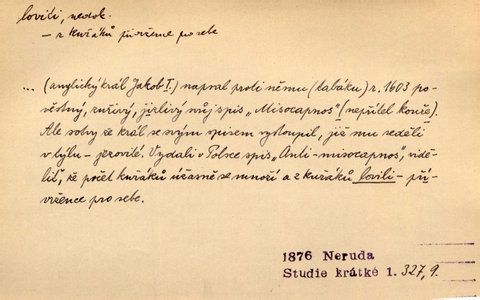 lovili, nedok.
– z kuřáků přívržence pro sebe
... (anglický král Jakob I.) napsal proti němu (tabáku) r. 1603 po-
věstný, zuřivý, jizlivý svůj spis „Misocapnos" (nepřítel kouře).
Ale sotvy že král se svým spisem vystoupil, již mu seděli
v týlu – jezovité. Vydali v Polsce spis „Anti-misocapnos", vidě-
liť, že počet kuřáků úžasně se množí a z kuřáků lovili – pří-
vržence pro sebe.
1876 Neruda
Studie krátké 1. 327,9.